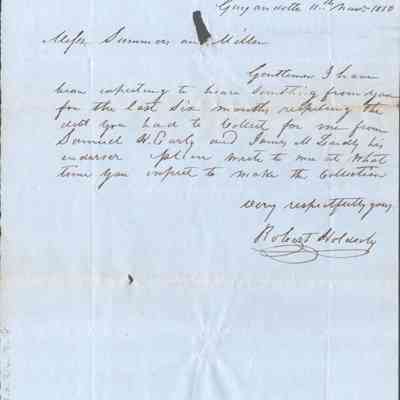 Guyandotte 11th Novr 1850
Messrs Summers and Miller
Gentlemen I have
been expecting to hear somthing from you
for the last six months respecting the
debt you had to Collect for me from
Samuel H. Early and James M Laidly his
endorser please write to me at What
time you expect to make the Collection
very respectfully yours
Robert Holderby